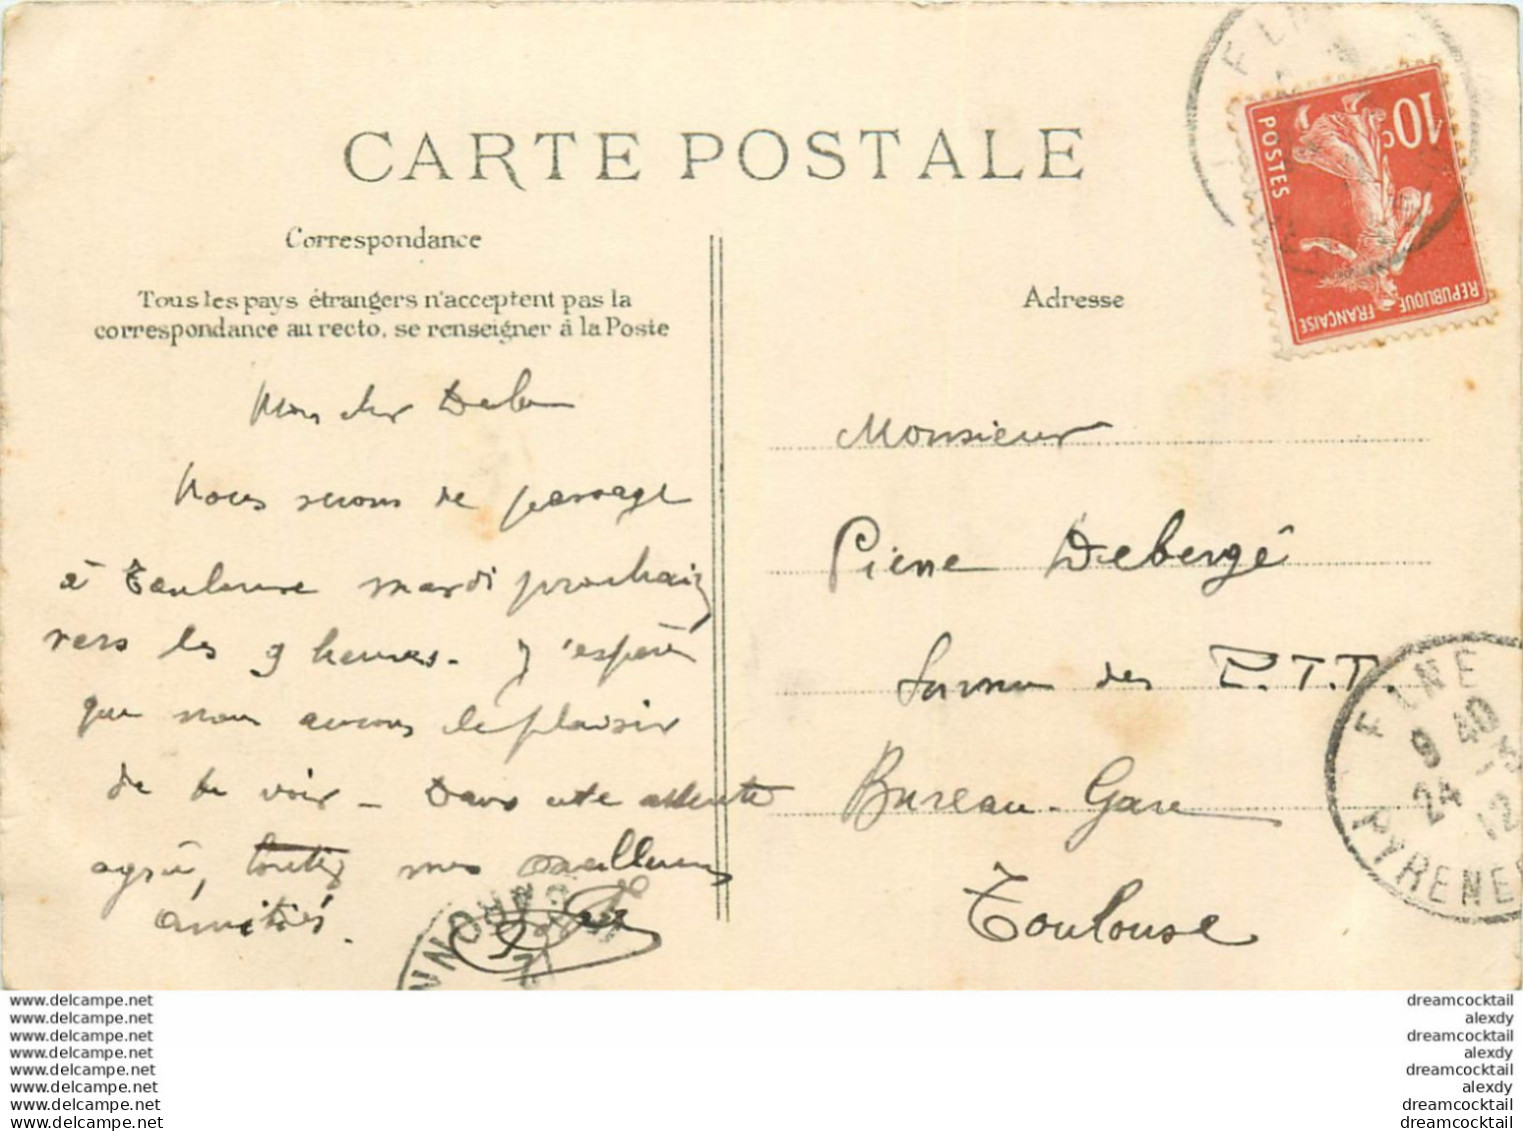 CARTE POSTALE
Correspondance
Tous les pays étrangers n'acceptent pas la
correspondance au recto, se renseigner à la Poste
Adresse
10c
POSTES
REPUBLIQUE FRANÇAISE
Mon cher
Nous serons de passage
à Toulouse mardi prochain
vers les 9 heures. J'espère
que nous aurons le plaisir
de te voir - Dans cette attente
agrée, toutes mes meilleures
amitiés.
Monsieur
Pierre Debergé
des P.T.T.
Bureau-Gare
Toulouse
ELNE
9 40
24 - 3
12
PYRENEES
www.delcampe.net
www.delcampe.net
www.delcampe.net
www.delcampe.net
www.delcampe.net
www.delcampe.net
www.delcampe.net
www.delcampe.net
dreamcocktail
alexdy
dreamcocktail
alexdy
dreamcocktail
alexdy
dreamcocktail
dreamcocktail